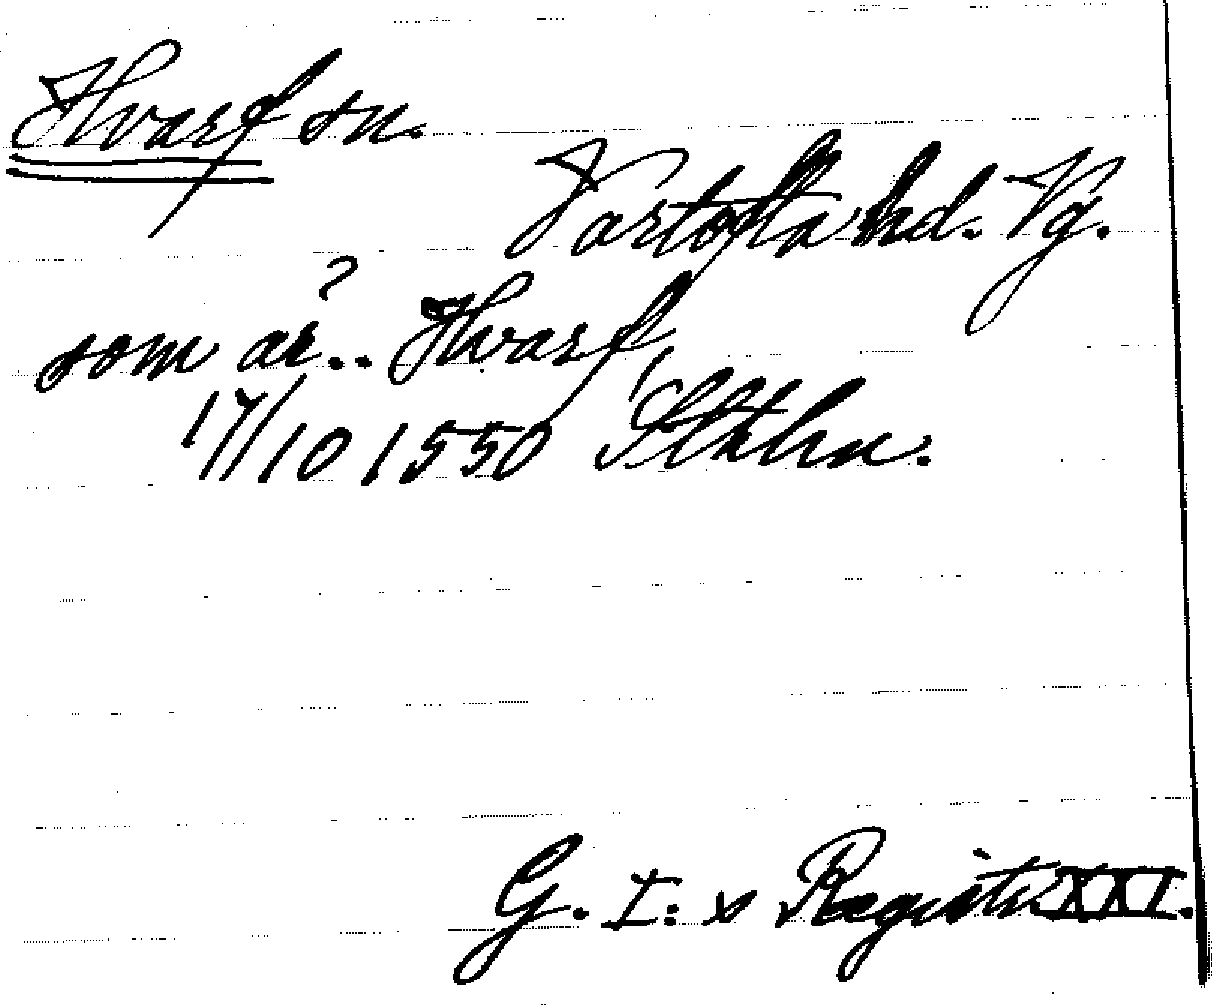 Hvarf sn.
Vartofta hd. Vg.
som är?.. Hvarf,
17/10 1550 Sthlm.
G. I:s Registr XXI.